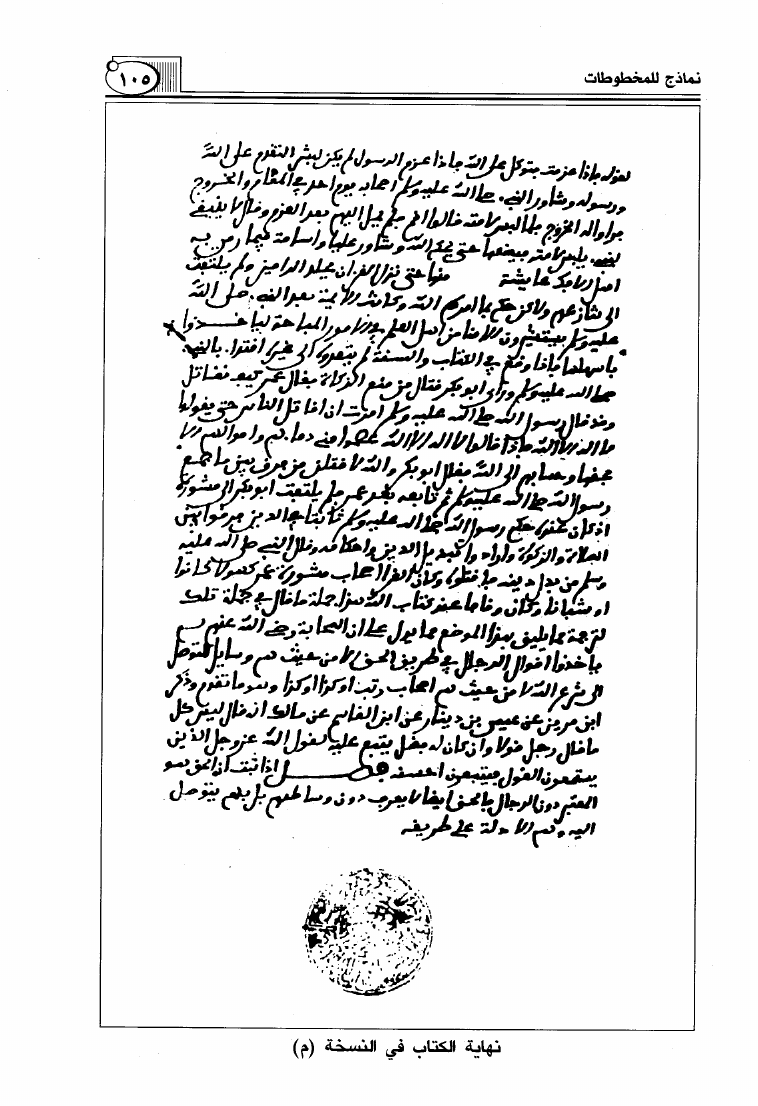 نماذج للمخطوطات
١٠٥
لقوله فإذا عزمت فتوكل على الله فإذا عزم الرسول لم يكن لبشر التقدم على الله
ورسوله وشاور النبي صلى الله عليه وسلم أصحابه يوم أحد في المقام والخروج
فرأوا له الخروج فلما لبس لامته قالوا أقم فلم يمل إليهم بعد العزم وقال لا ينبغي
لنبي يلبس لامته فيضعها حتى يحكم الله وشاور عليا وأسامة فيما رمى به
أهل الإفك عائشة منها حتى نزل القرآن فجلد الرامين ولم يلتفت
إلى تنازعهم ولكن حكم بما أمره الله وكانت الأئمة بعد النبي صلى الله
عليه وسلم يستشيرون الأمناء من أهل العلم في الأمور المباحة ليأخذوا
بأسهلها فإذا وقع في الكتاب والسنة لم يتعدوه إلى غيره اقتداء بالنبي
صلى الله عليه وسلم ورأى أبو بكر قتال من منع الزكاة فقال عمر كيف تقاتل
وقد قال رسول الله صلى الله عليه وسلم أمرت أن أقاتل الناس حتى يقولوا
لا إله إلا الله فإذا قالوا لا إله إلا الله عصموا مني دماءهم وأموالهم إلا
بحقها وحسابهم إلى الله فقال أبو بكر والله لأقاتلن من فرق بين ما جمع
رسول الله صلى الله عليه وسلم ثم تابعه بعد عمر فلم يلتفت أبو بكر إلى مشورة
إذ كان عنده حكم رسول الله صلى الله عليه وسلم ثابتا في الذين فرقوا بين
الصلاة والزكاة وأرادوا تبديل الدين وأحكامه وقال النبي صلى الله عليه
وسلم من بدل دينه فاقتلوه وكان القراء أصحاب مشورة عمر كهولا كانوا
أو شبانا وكان وقافا عند كتاب الله هذا جملة ما قال في جملة تلك
الترجمة مما يليق بهذا الموضع مما يدل على أن الصحابة رضي الله عنهم لم
يأخذوا أقوال الرجال في طريق الحق إلا من حيث هم وسائل للتوصل
إلى شرع الله لا من حيث هم أصحاب رتب أو كذا أو كذا وهو ما تقدم وذكر
ابن مزين عن عيسى بن دينار عن ابن القاسم عن مالك أنه قال ليس كل
ما قال رجل قولا وإن كان له فضل يتبع عليه لقول الله عز وجل الذين
يستمعون القول فيتبعون أحسنه فصل إذا ثبت أن الحق هو
المعتبر دون الرجال فالحق أيضا لا يعرف دون وسائطهم بل بهم يتوصل
إليه وهم الأدلة على طريقه
نهاية الكتاب في النسخة (م)